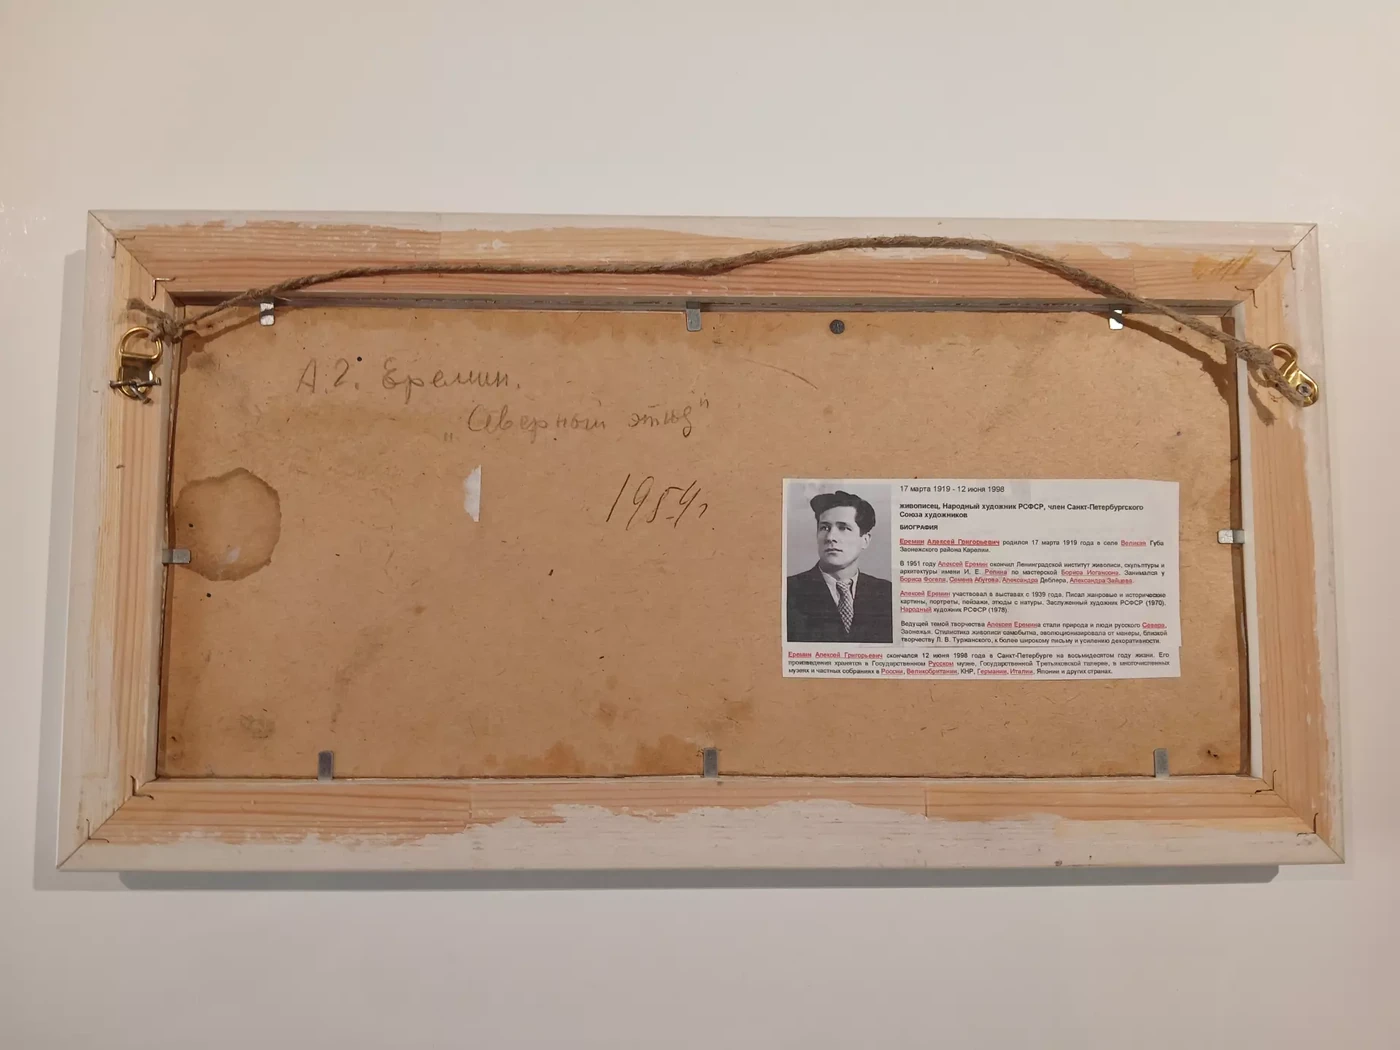 А.Г. Еремин.
„Северный этюд"
1954г
17 марта 1919 - 12 июня 1998
живописец, Народный художник РСФСР, член Санкт-Петербургского
Союза художников
БИОГРАФИЯ
Еремин Алексей Григорьевич родился 17 марта 1919 года в селе Великая Губа
Заонежского района Карелии.
В 1951 году Алексей Еремин окончил Ленинградский институт живописи, скульптуры и
архитектуры имени И. Е. Репина по мастерской Бориса Иогансона. Занимался у
Бориса Фогеля, Семена Абугова, Александра Деблера, Александра Зайцева.
Алексей Еремин участвовал в выставах с 1939 года. Писал жанровые и исторические
картины, портреты, пейзажи, этюды с натуры. Заслуженный художник РСФСР (1970).
Народный художник РСФСР (1978).
Ведущей темой творчества Алексея Еремина стали природа и люди русского Севера,
Заонежья. Стилистика живописи самобытна, эволюционизировала от манеры, близкой
творчеству Л. В. Туржанского, к более широкому письму и усилению декоративности.
Еремин Алексей Григорьевич скончался 12 июня 1998 года в Санкт-Петербурге на восьмидесятом году жизни. Его
произведения хранятся в Государственном Русском музее, Государственной Третьяковской галерее, в многочисленных
музеях и частных собраниях в России, Великобритании, КНР, Германии, Италии, Японии и других странах.